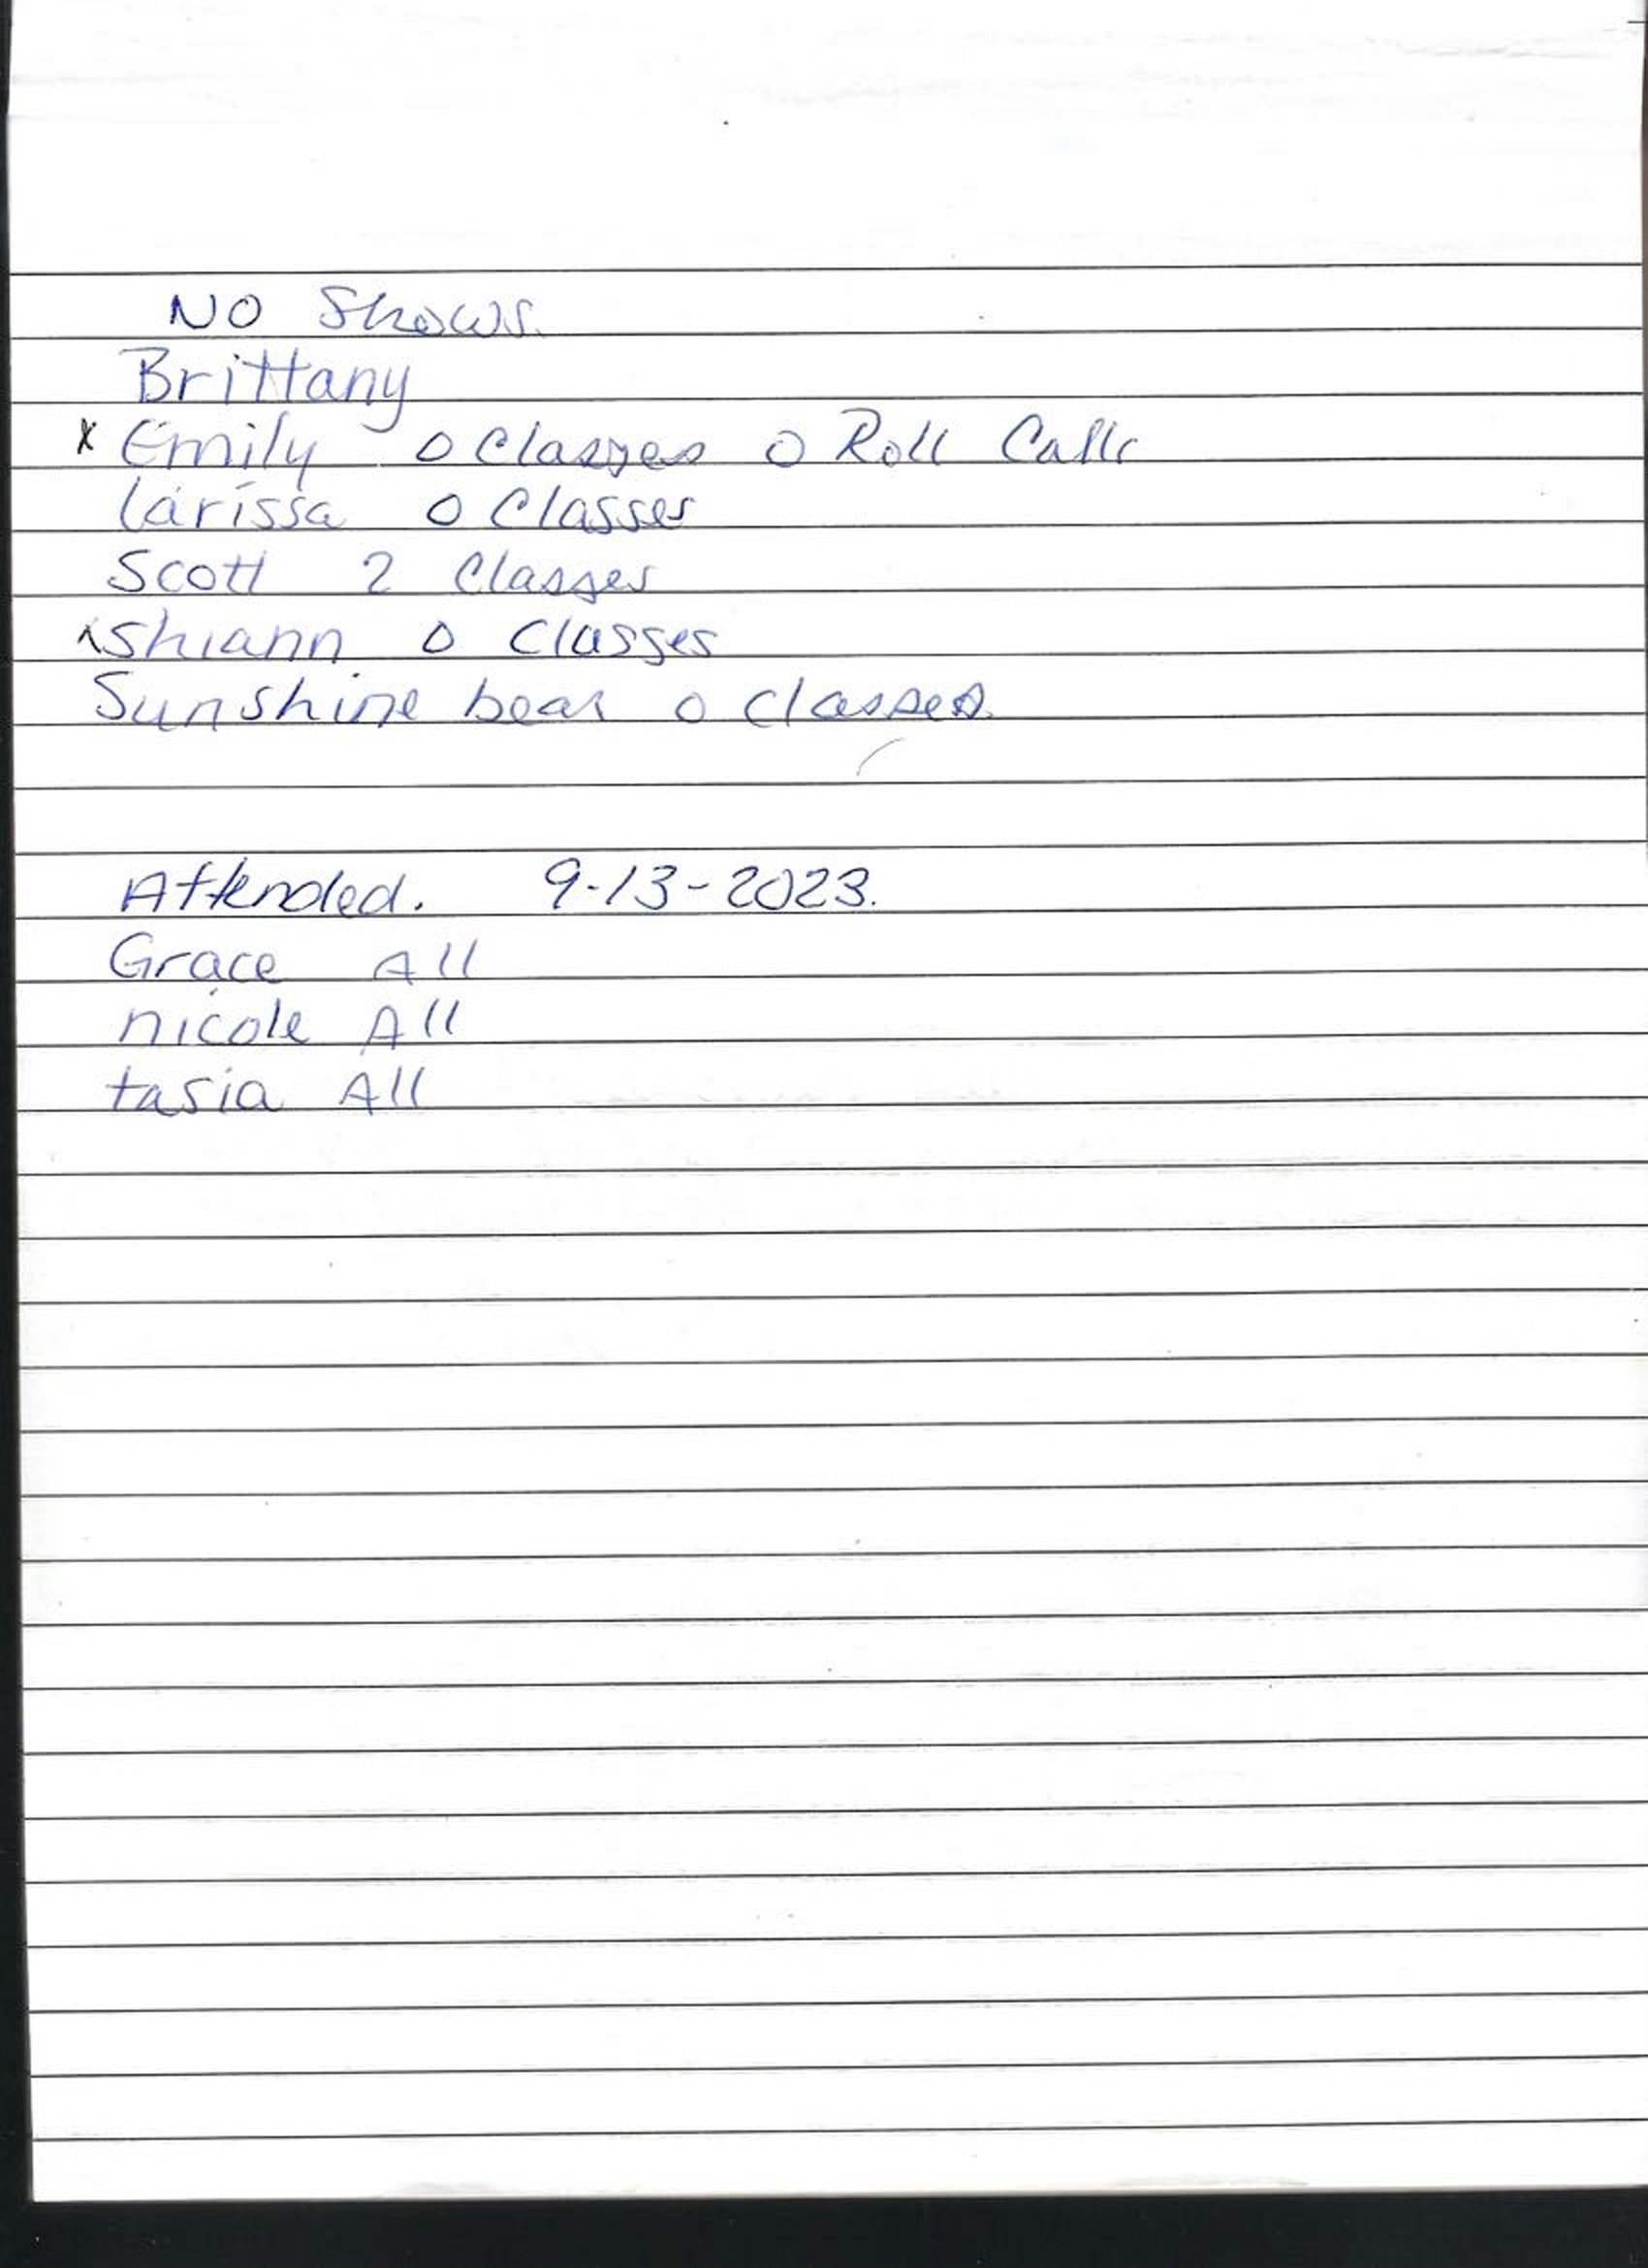 NO Shows.
Brittany
x Emily 0 Classes 0 Roll Calls
Larissa 0 Classes
Scott 2 Classes
xShiann 0 Classes
Sunshine bear 0 classes.
Attended. 9-13-2023.
Grace All
nicole All
tasia All